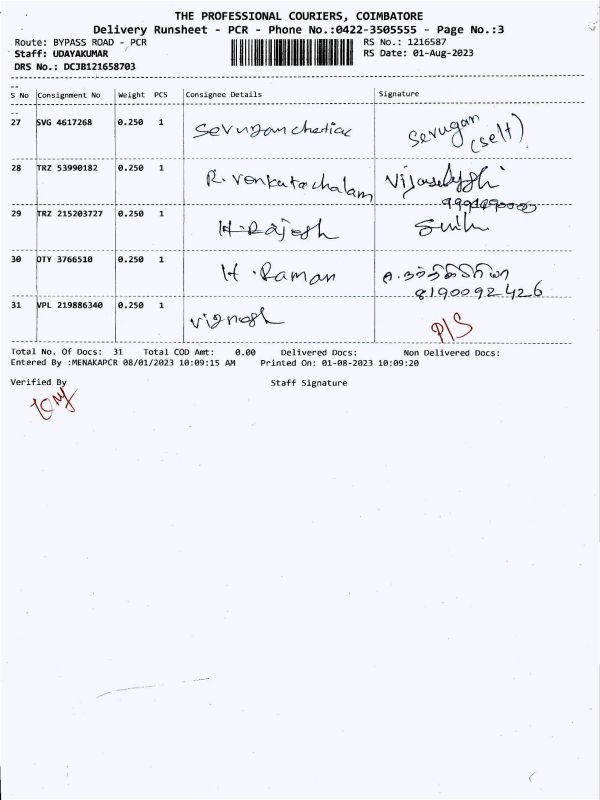 THE PROFESSIONAL COURIERS, COIMBATORE
Delivery Runsheet - PCR - Phone No.:0422-3505555 - Page No.:3
Route: BYPASS ROAD - PCR RS No.: 1216587
Staff: UDAYAKUMAR RS Date: 01-Aug-2023
DRS No.: DCJB121658703
S No Consignment No Weight PCS Consignee Details Signature
27 SVG 4617268 0.250 1 Sevugan chetiar Sevugan
(self)
28 TRZ 53990182 0.250 1 R. Venkatachalam
29 TRZ 215203727 0.250 1 H. Rajesh
30 OTY 3766510 0.250 1 H. Raman
8190092426
31 VPL 219886340 0.250 1 Vignesh P/S
Total No. Of Docs: 31 Total COD Amt: 0.00 Delivered Docs: Non Delivered Docs:
Entered By :MENAKAPCR 08/01/2023 10:09:15 AM Printed On: 01-08-2023 10:09:20
Verified By Staff Signature